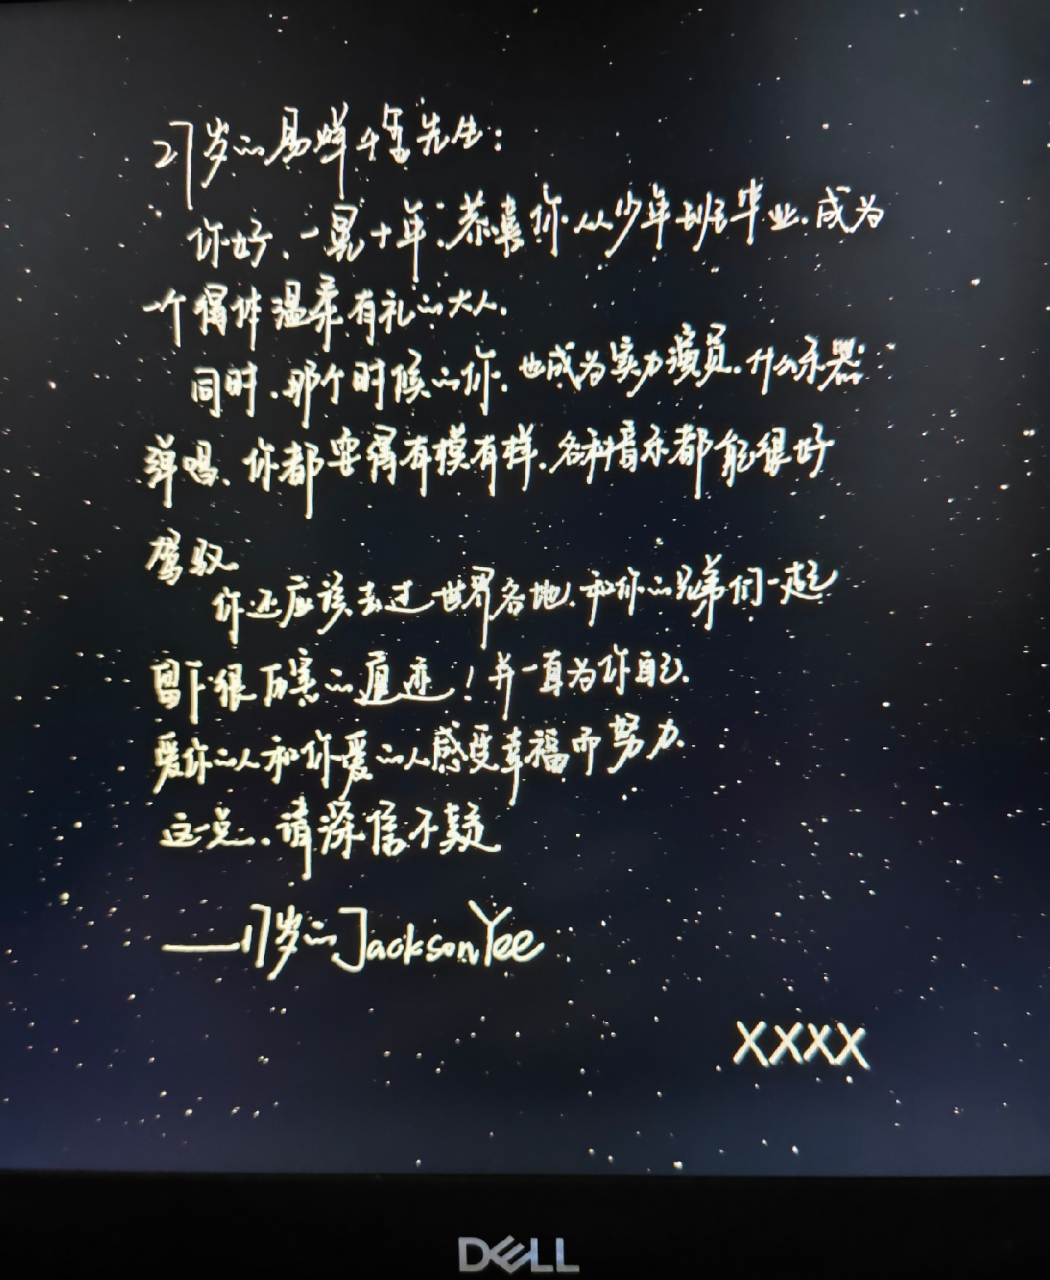 27岁的易烊千玺先生：
你好、一晃十年，恭喜你从少年班毕业、成为
一个得体温柔有礼的大人、
同时、那个时候的你、也成为实力演员、什么乐器
弹唱、你都耍得有模有样、各种音乐都能很好
驾驭
你还应该去过世界各地、和你的兄弟们一起
留下很厉害的痕迹！并一直为你自己、
爱你的人和你爱的人感受幸福而努力、
这一点、请深信不疑
——17岁的JacksonYee
XXXX
DELL